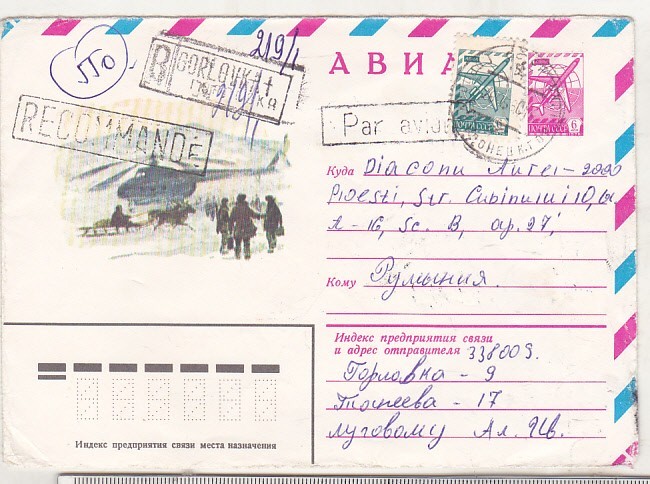 ППО
219/1
R GORLOVKA 1
219/1
RECOMMANDÉ
АВИА
Par avion
ПОЧТА СССР
ПОЧТА СССР 6
Куда Diaconu Aurel - 2000
Ploesti, Str. Cupinului 10, bl
A - 16, Sc. B, ap. 27,
Кому Румыния.
Индекс предприятия связи
и адрес отправителя 338009.
Горловка - 9
Тонеева - 17
Луговому Ал. Ив.
Индекс предприятия связи места назначения